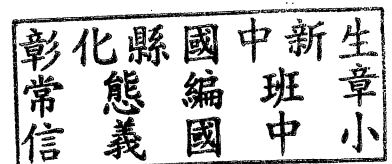 彰化縣國中新生
常態編班章
信義國中小